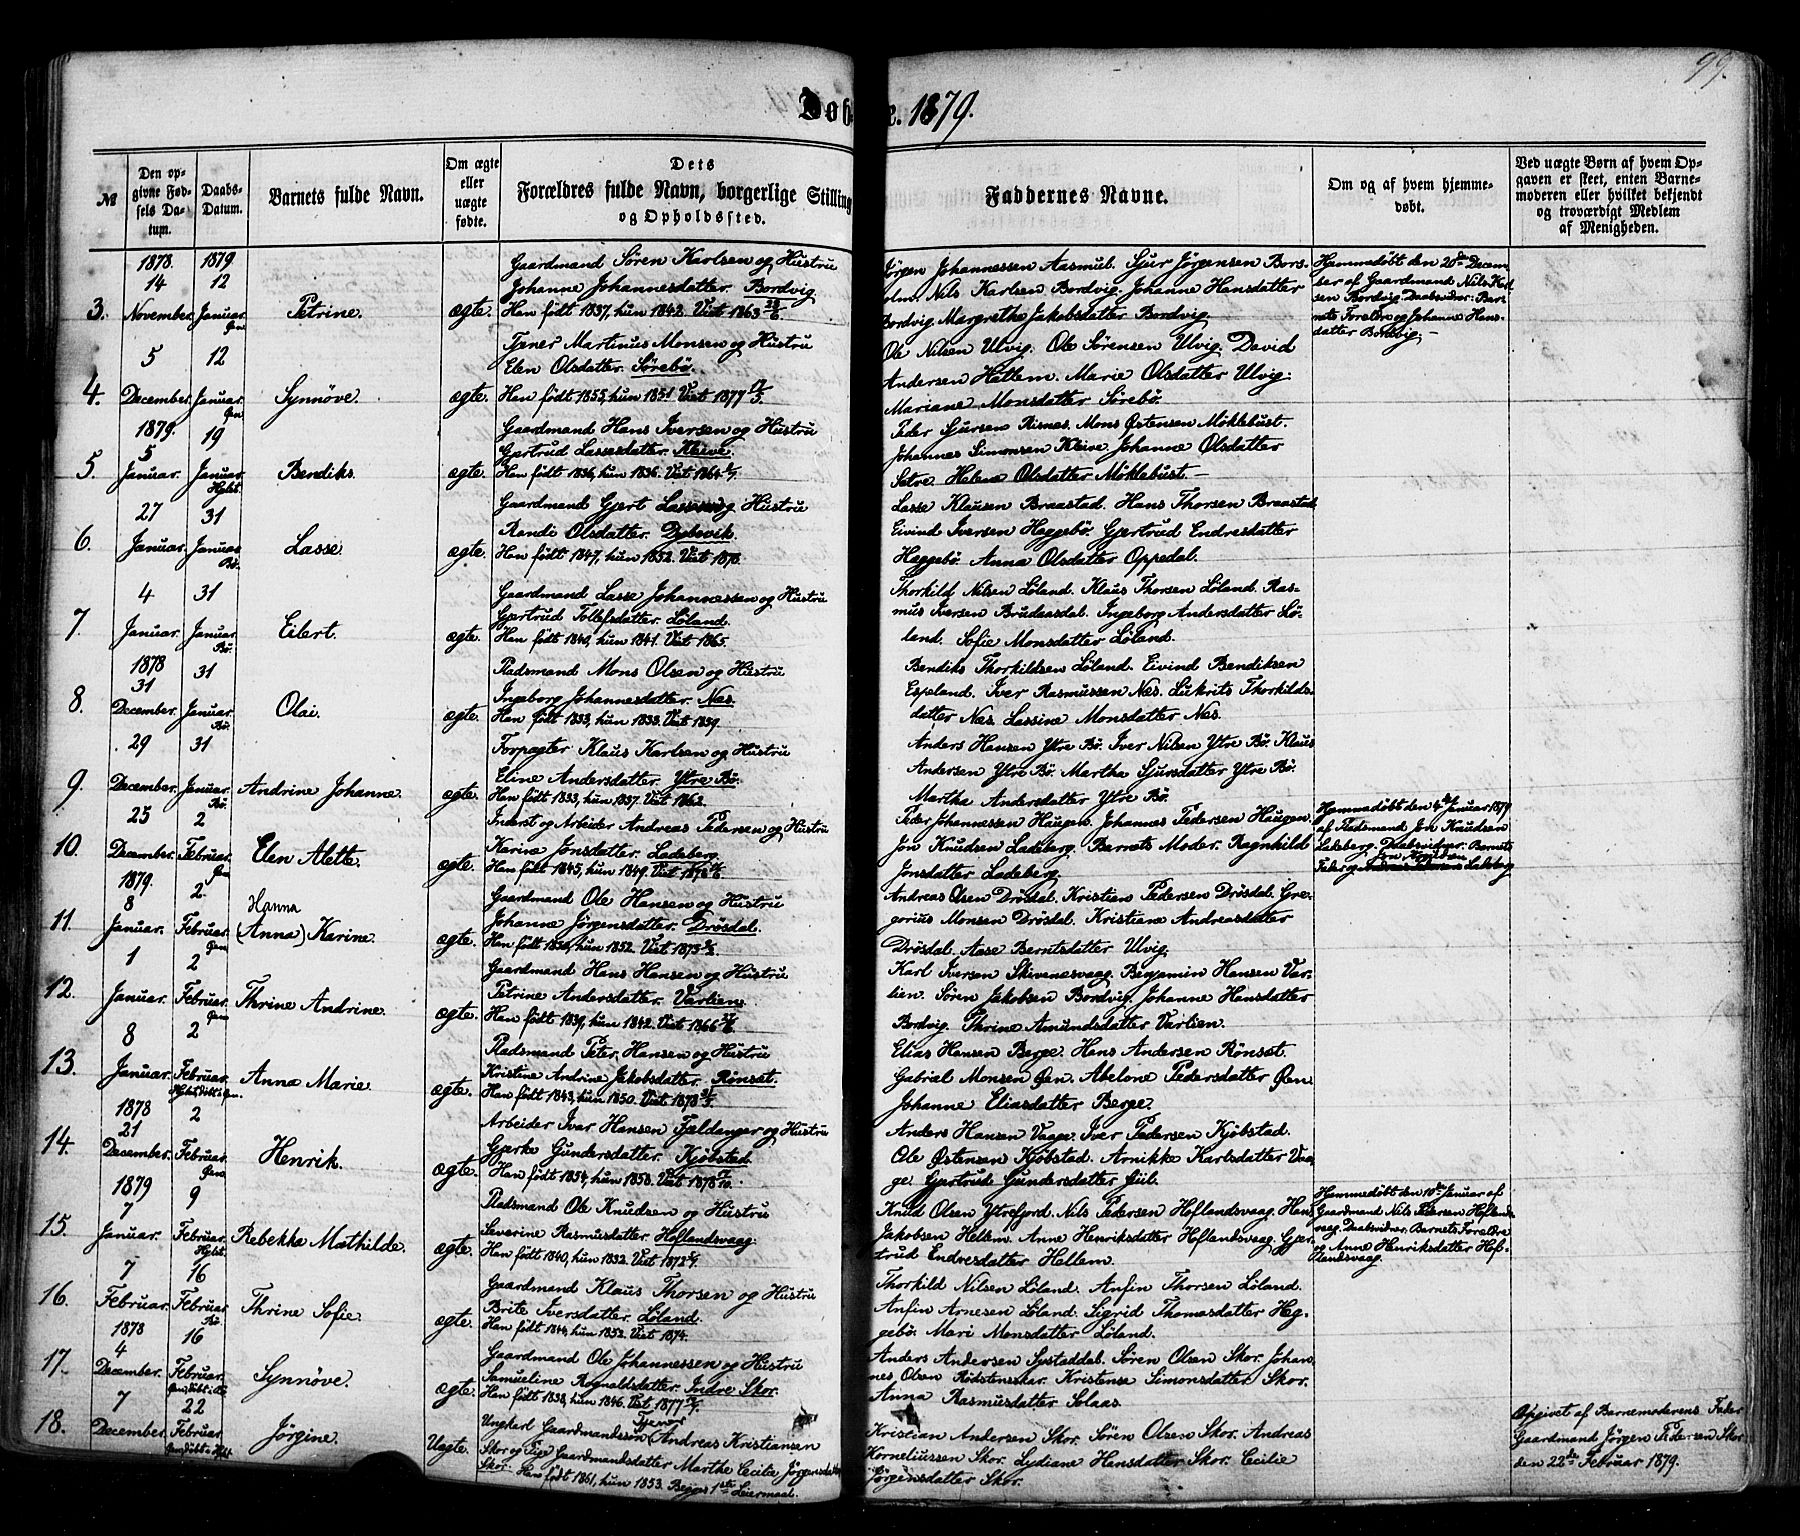 99.
Døbte. 1879.
№
Den op-
givne Fød-
sels Da-
tum.
Daabs-
Datum.
Barnets fulde Navn.
Om ægte
eller
uægte
fødte.
Dets
Forældres fulde Navn, borgerlige Stilling
og Opholdssted.
Faddernes Navne.
Om og af hvem hjemme-
døbt.
Ved uægte Børn af hvem Op-
gaven er skeet, enten Barne-
moderen eller hvilket bekjendt
og troværdigt Medlem
af Menigheden.
3.
1878.
14
November.
1879
12
Januar.
Petrine.
ægte.
Gaardmand Sören Karlsen og Hustru
Johanne Johannesdatter. Bordvig
Han født 1837, hun 1842. Viet 1863
Jørgen Johannessen Aasmul. Sjur Jørgensen Bors-
holm. Nils Karlsen Bordvig. Johanne Hansdatter
Bordvig. Margrethe Jakobsdatter Bordvig.
Hjemmedøbt den 20de Decem-
ber af Gaardmand Nils Karl-
sen Bordvig. Daabsvidner: Bar-
nets Forældre og Johanne Hans-
datter Bordvig. —
4.
5
December.
12
Januar.
Synnöve.
ægte.
Tjener Martinus Monsen og Hustru
Elen Olsdatter. Sørebø.
Han født 1855, hun 1851. Viet 1877
Ole Nilsen Ulvig. Ole Sörensen Ulvig. David
Andersen Hetlem. Marie Olsdatter Ulvig.
Mariane Monsdatter Sørebø.
5.
1879.
5
Januar.
19
Januar.
Bendiks.
ægte.
Gaardmand Hans Iversen og Hustru
Gertrud Lassesdatter. Kleive.
Han født 1836, hun 1836. Viet 1864
Peder Sjursen Risnes. Mons Østensen Möklebust.
Johannes Simonsen Kleive. Johanne Olsdatter
Sætre. Helene Olsdatter Möklebust. —
6.
27
Januar.
31
Januar.
Bø.
Lasse.
ægte.
Gaardmand Gjert Lassen og Hustru
Randi Olsdatter. Dybevik.
Han født 1847, hun 1852. Viet 1870.
Lasse Klausen Braastad. Hans Thorsen Braastad
Eivind Iversen Heggebø. Gjertrud Endresdatter
Heggebø. Anna Olsdatter Oppedal.
7.
4
Januar.
31
Januar.
Bø.
Eilert.
ægte.
Gaardmand Lasse Johannessen og Hustru
Gjertrud Tollefsdatter. Løland.
Han født 1840, hun 1841. Viet 1865.
Thorkild Nilsen Løland. Klaus Thorsen Løland. Ras-
mus Iversen Brudersdal. Ingeborg Andersdatter Lø-
land. Sofie Monsdatter Løland.
8.
1878
31
December.
31
Januar.
Bø.
Olai.
ægte.
Pladsmand Mons Olsen og Hustru
Ingeborg Johannesdatter. Nes.
Han født 1833, hun 1833. Viet 1859.
Bendiks Thorkildsen Løland. Eivind Bendiksen
Espeland. Iver Rasmussen Nes. Lukrits Thorkilds-
datter Nes. Lassine Monsdatter Nes.
9.
29
December.
31
Januar.
Bø.
Andrine Johanne.
ægte.
Forpagter Klaus Karlsen og Hustru
Eline Andersdatter. Ytre Bø.
Han født 1833, hun 1837. Viet 1862.
Anders Hansen Ytre Bø. Iver Nilsen Ytre Bø. Klaus
Andersen Ytre Bø. Martha Sjursdatter Ytre Bø.
Martha Andersdatter Ytre Bø.
10.
25
December.
2
Februar.
Elen Alette.
ægte.
Inderst og Arbeider Andreas Pedersen og Hustru
Karine Jonsdatter. Ladeberg.
Han født 1845, hun 1849. Viet 1872
Peder Johannessen Haugen. Johannes Pedersen Haugen.
Jon Knudsen Ladeberg. Barnets Moder. Ragnhild
Jonsdatter Ladeberg.
Hjemmedøbt den 4de Januar 1879
af Pladsmand Jon Knudsen
Ladeberg. Daabsvidner: Barnets
Fader og Jon Knudsen Ladeberg
11.
1879.
8
Januar.
2
Februar.
Hanna
(Anna) Karine.
ægte.
Gaardmand Ole Hansen og Hustru
Johanne Jörgensdatter. Drösdal.
Han født 1850, hun 1852. Viet 1873
Andreas Olsen Drösdal. Kristian Pedersen Drösdal. Gre-
gorius Monsen Drösdal. Kristiane Andreasdatter
Drösdal. Aase Berntsdatter Ulvig.
12.
1
Januar.
2
Februar.
Thrine Andrine.
ægte.
Gaardmand Hans Hansen og Hustru
Petrine Andersdatter. Varlien.
Han født 1839, hun 1842. Viet 1866
Karl Iversen Skivenesvaag. Benjamin Hansen Var-
lien. Sören Jakobsen Bordvig. Johanne Hansdatter
Bordvig. Thrine Amundsdatter Varlien.
13.
8
Januar.
2
Februar.
Anna Marie
ægte.
Pladsmand Peter Hansen og Hustru
Kristine Andrine Jakobsdatter. Rønset.
Han født 1843, hun 1850. Viet 1878
Elias Hansen Berge. Hans Andersen Rønset.
Gabriel Monsen Øen. Abelone Pedersdatter Øen.
Johanne Eliasdatter Berge.
14.
1878
21
December.
2
Februar.
Henrik.
ægte.
Arbeider Ivar Hansen Fjeldanger og Hustru
Gjerke Gundersdatter. Kjøbstad.
Han født 1854, hun 1858. Viet 1878
Anders Hansen Vaage. Iver Pedersen Kjøbstad.
Ole Østensen Kjøbstad. Arnikke Karlsdatter Vaa-
ge. Gjertrude Gundersdatter Giil.
15.
1879
7
Januar.
9
Februar.
Rebekka Mathilde.
ægte.
Pladsmand Ole Knudsen og Hustru
Severine Rasmusdatter. Hoflandsvaag.
Han født 1840, hun 1832. Viet 1872
Knud Olsen Ytrefjord. Nils Pedersen Hoflandsvaag. Hans
Jakobsen Hellem. Anne Henriksdatter Hoflandsvaag. Gjer-
trud Endresdatter Hellem.
Hjemmedøbt den 10de Januar af
Gaardmand Nils Petersen Hoflands-
vaag. Daabsvidner: Barnets Forældre
og Anne Henriksdatter Hof-
landsvaag.
16.
7
Februar.
16
Februar.
Bø.
Thrine Sofie.
ægte.
Gaardmand Klaus Thorsen og Hustru
Brite Iversdatter. Løland.
Han født 1844, hun 1852. Viet 1874.
Thorkild Nilsen Løland. Anfin Thorsen Løland.
Anfin Arnesen Løland. Sigrid Thomasdatter Heg-
gebø. Mari Monsdatter Løland.
17.
1878
4
December.
16
Februar.
Synnöve.
ægte.
Gaardmand Ole Johannessen og Hustru
Samueline Rognaldsdatter. Indre Skor.
Han født 1838, hun 1846. Viet 1877
Anders Andersen Systaddal. Sören Olsen Skor. Johan-
nes Olsen Risbtenskar. Kristense Simonsdatter Skor.
Anna Rasmusdatter Solaas.
18.
7
December.
22
Februar.
Jörgine.
Uægte.
Ungkarl Gaardmandssön Tjener Andreas Kristiansen
Skor og Pige Gaardmandsdatter Marthe Cecilie Jörgensdatter
Skor. Han født 1861, hun 1853. Begges 1ste Leiermaal.
Kristian Andersen Skor. Sören Olsen Skor. Andreas
Korneliussen Skor. Lydiane Hansdatter Skor. Cecilie
Jörgensdatter Skor.
Opgivet af Barnemoderens Fader
Gaardmand Jörgen Pedersen Skor
den 22de Februar 1879.